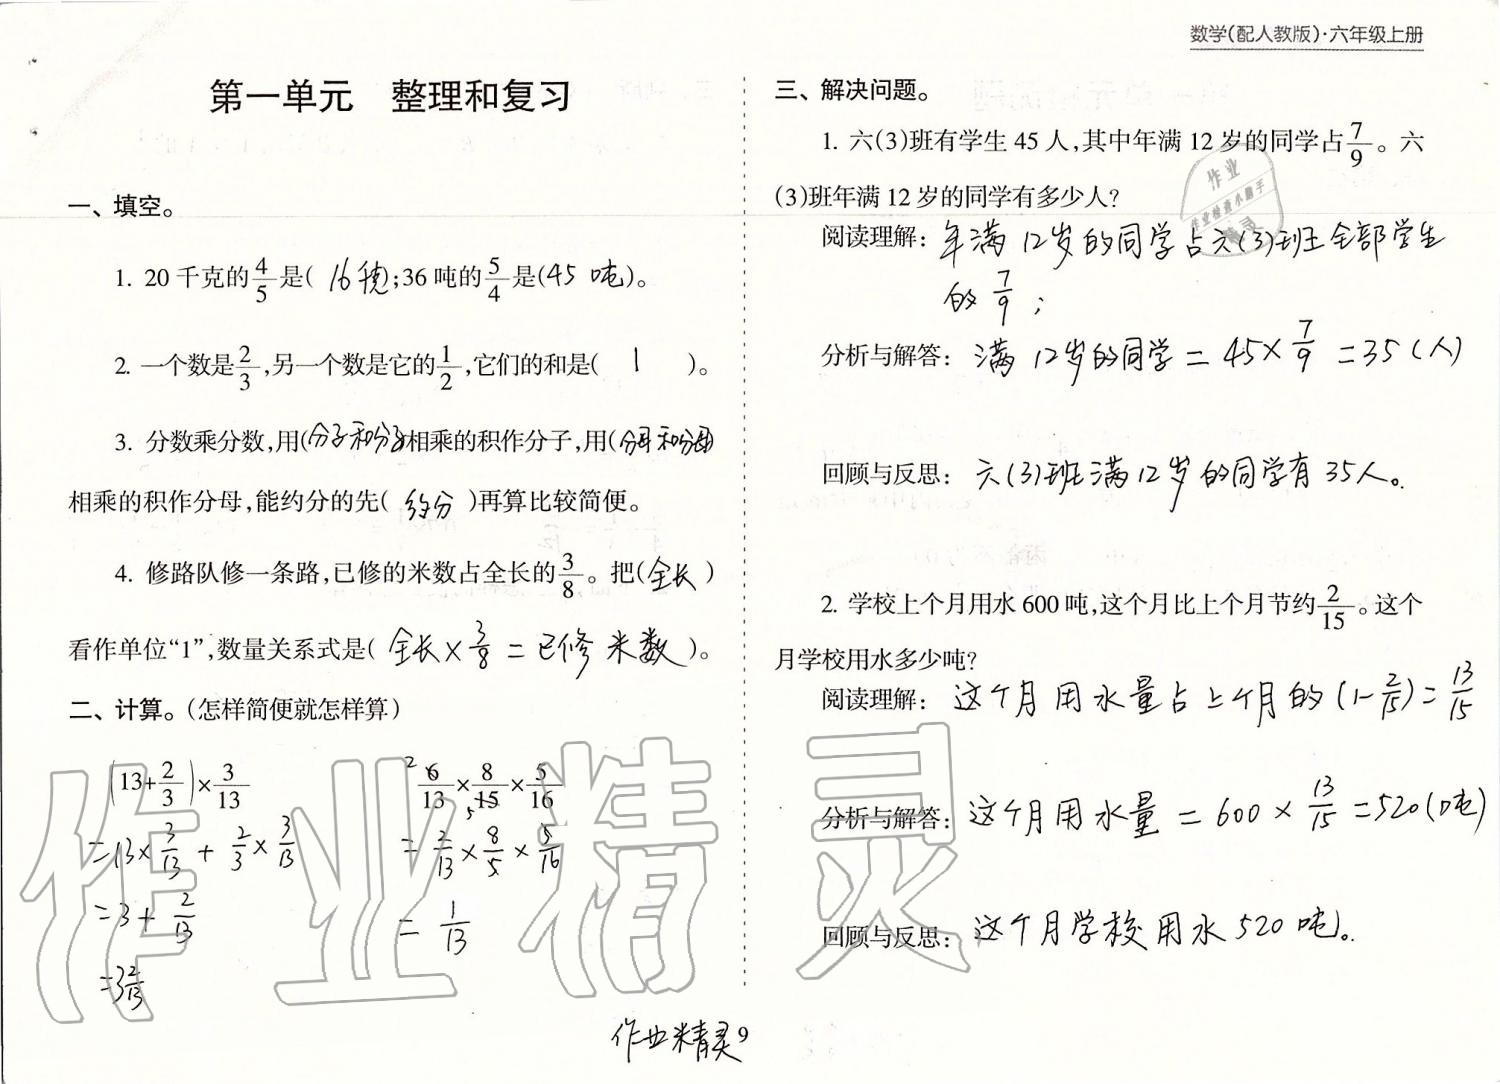 数学(配人教版)·六年级上册
第一单元 整理和复习
一、填空。
1. 20 千克的4/5是( 16千克 );36 吨的5/4是(45 吨)。
2. 一个数是2/3,另一个数是它的1/2,它们的和是( 1 )。
3. 分数乘分数,用(分子和分子)相乘的积作分子,用(分母和分母)
相乘的积作分母,能约分的先( 约分 )再算比较简便。
4. 修路队修一条路,已修的米数占全长的3/8。把(全长)
看作单位“1”,数量关系式是( 全长×3/8=已修米数 )。
二、计算。(怎样简便就怎样算)
(13+2/3)×3/13
=13×3/13+2/3×3/13
=3+2/13
=3 2/13
6/13×8/15×5/16
2
5
=2/13×8/5×5/16
=1/13
三、解决问题。
1. 六(3)班有学生 45 人,其中年满 12 岁的同学占7/9。六
(3)班年满 12 岁的同学有多少人?
阅读理解: 年满12岁的同学占六(3)班全部学生
的7/9;
分析与解答: 满12岁的同学=45×7/9=35(人)
回顾与反思: 六(3)班满12岁的同学有35人。
2. 学校上个月用水 600 吨,这个月比上个月节约2/15。这个
月学校用水多少吨?
阅读理解: 这个月用水量占上个月的(1-2/15)=13/15
分析与解答: 这个月用水量=600×13/15=520(吨)
回顾与反思: 这个月学校用水520吨。
作业
作业检查小助手
作业精灵
作业精灵
9